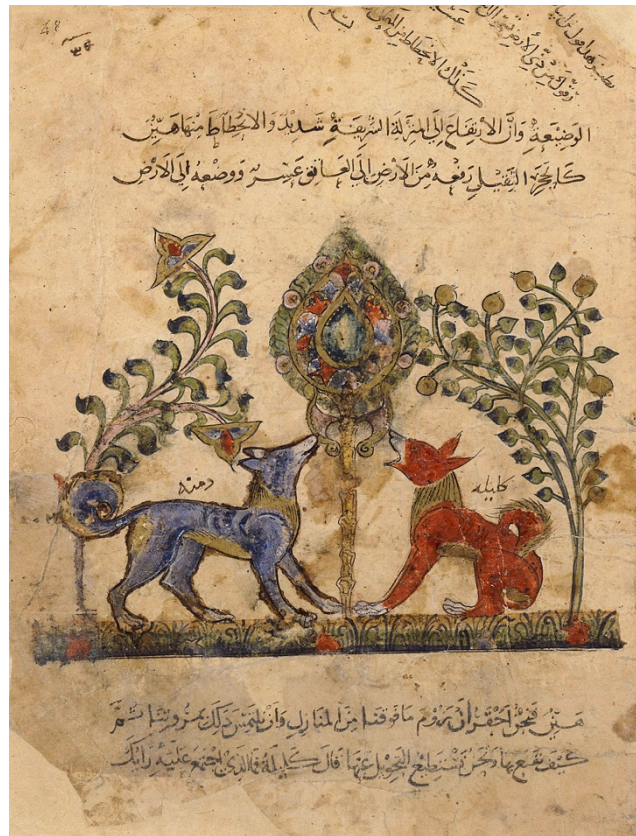 48
الوضيعة وان الارتفاع الي المنزلة الشريفة شديد والانحطاط منها هين
كالحجر الثقيل رفعه من الارض الي العاتق عسر ووضعه الي الارض
دمنه
كليله
هين فنحن احق ان نروم ما فوقنا من المنازل وان نلتمس ذلك بمروتنا ثم
كيف نقنع بها ونحن نستطيع التحويل عنها قال كليلة فما الذي اجتمع عليه رايك